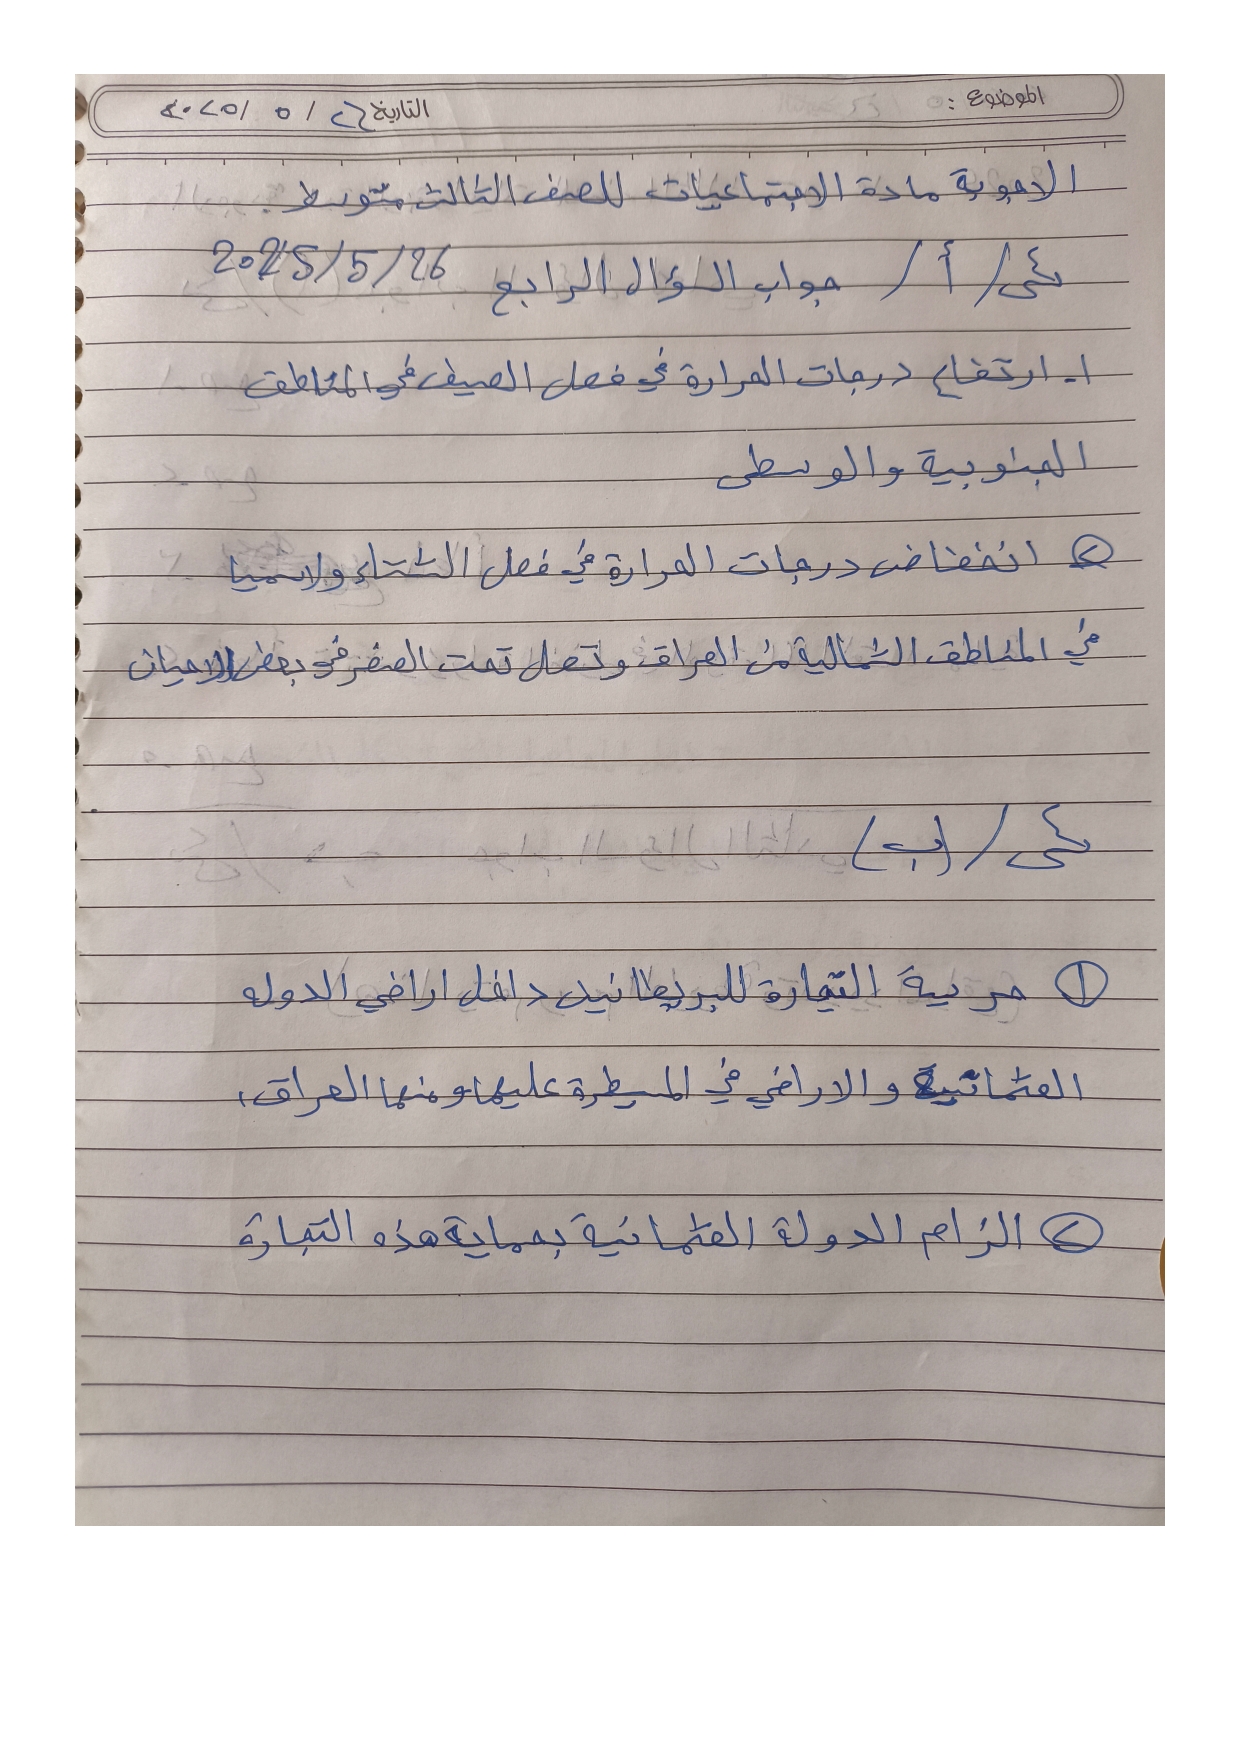 الموضوع :
التاريخ ٢٦ / ٥ / ٢٠٢٥
الاجوبة مادة الاجتماعيات للصف الثالث متوسط .
س٤/ أ / جواب السؤال الرابع 2025/5/26
١- ارتفاع درجات الحرارة في فصل الصيف في المناطق
الجنوبية والوسطى
٢ انخفاض درجات الحرارة في فصل الشتاء ولاسيما
في المناطق الشمالية من العراق وتصل تحت الصفر في بعض الاحيان
س٤/ (ب)
١ حرية التجارة للبريطانين داخل اراضي الدوله
العثمانية والاراضي في المسيطرة عليها ومنها العراق،
٢ الزام الدولة العثمانية بحماية هذه التجارة